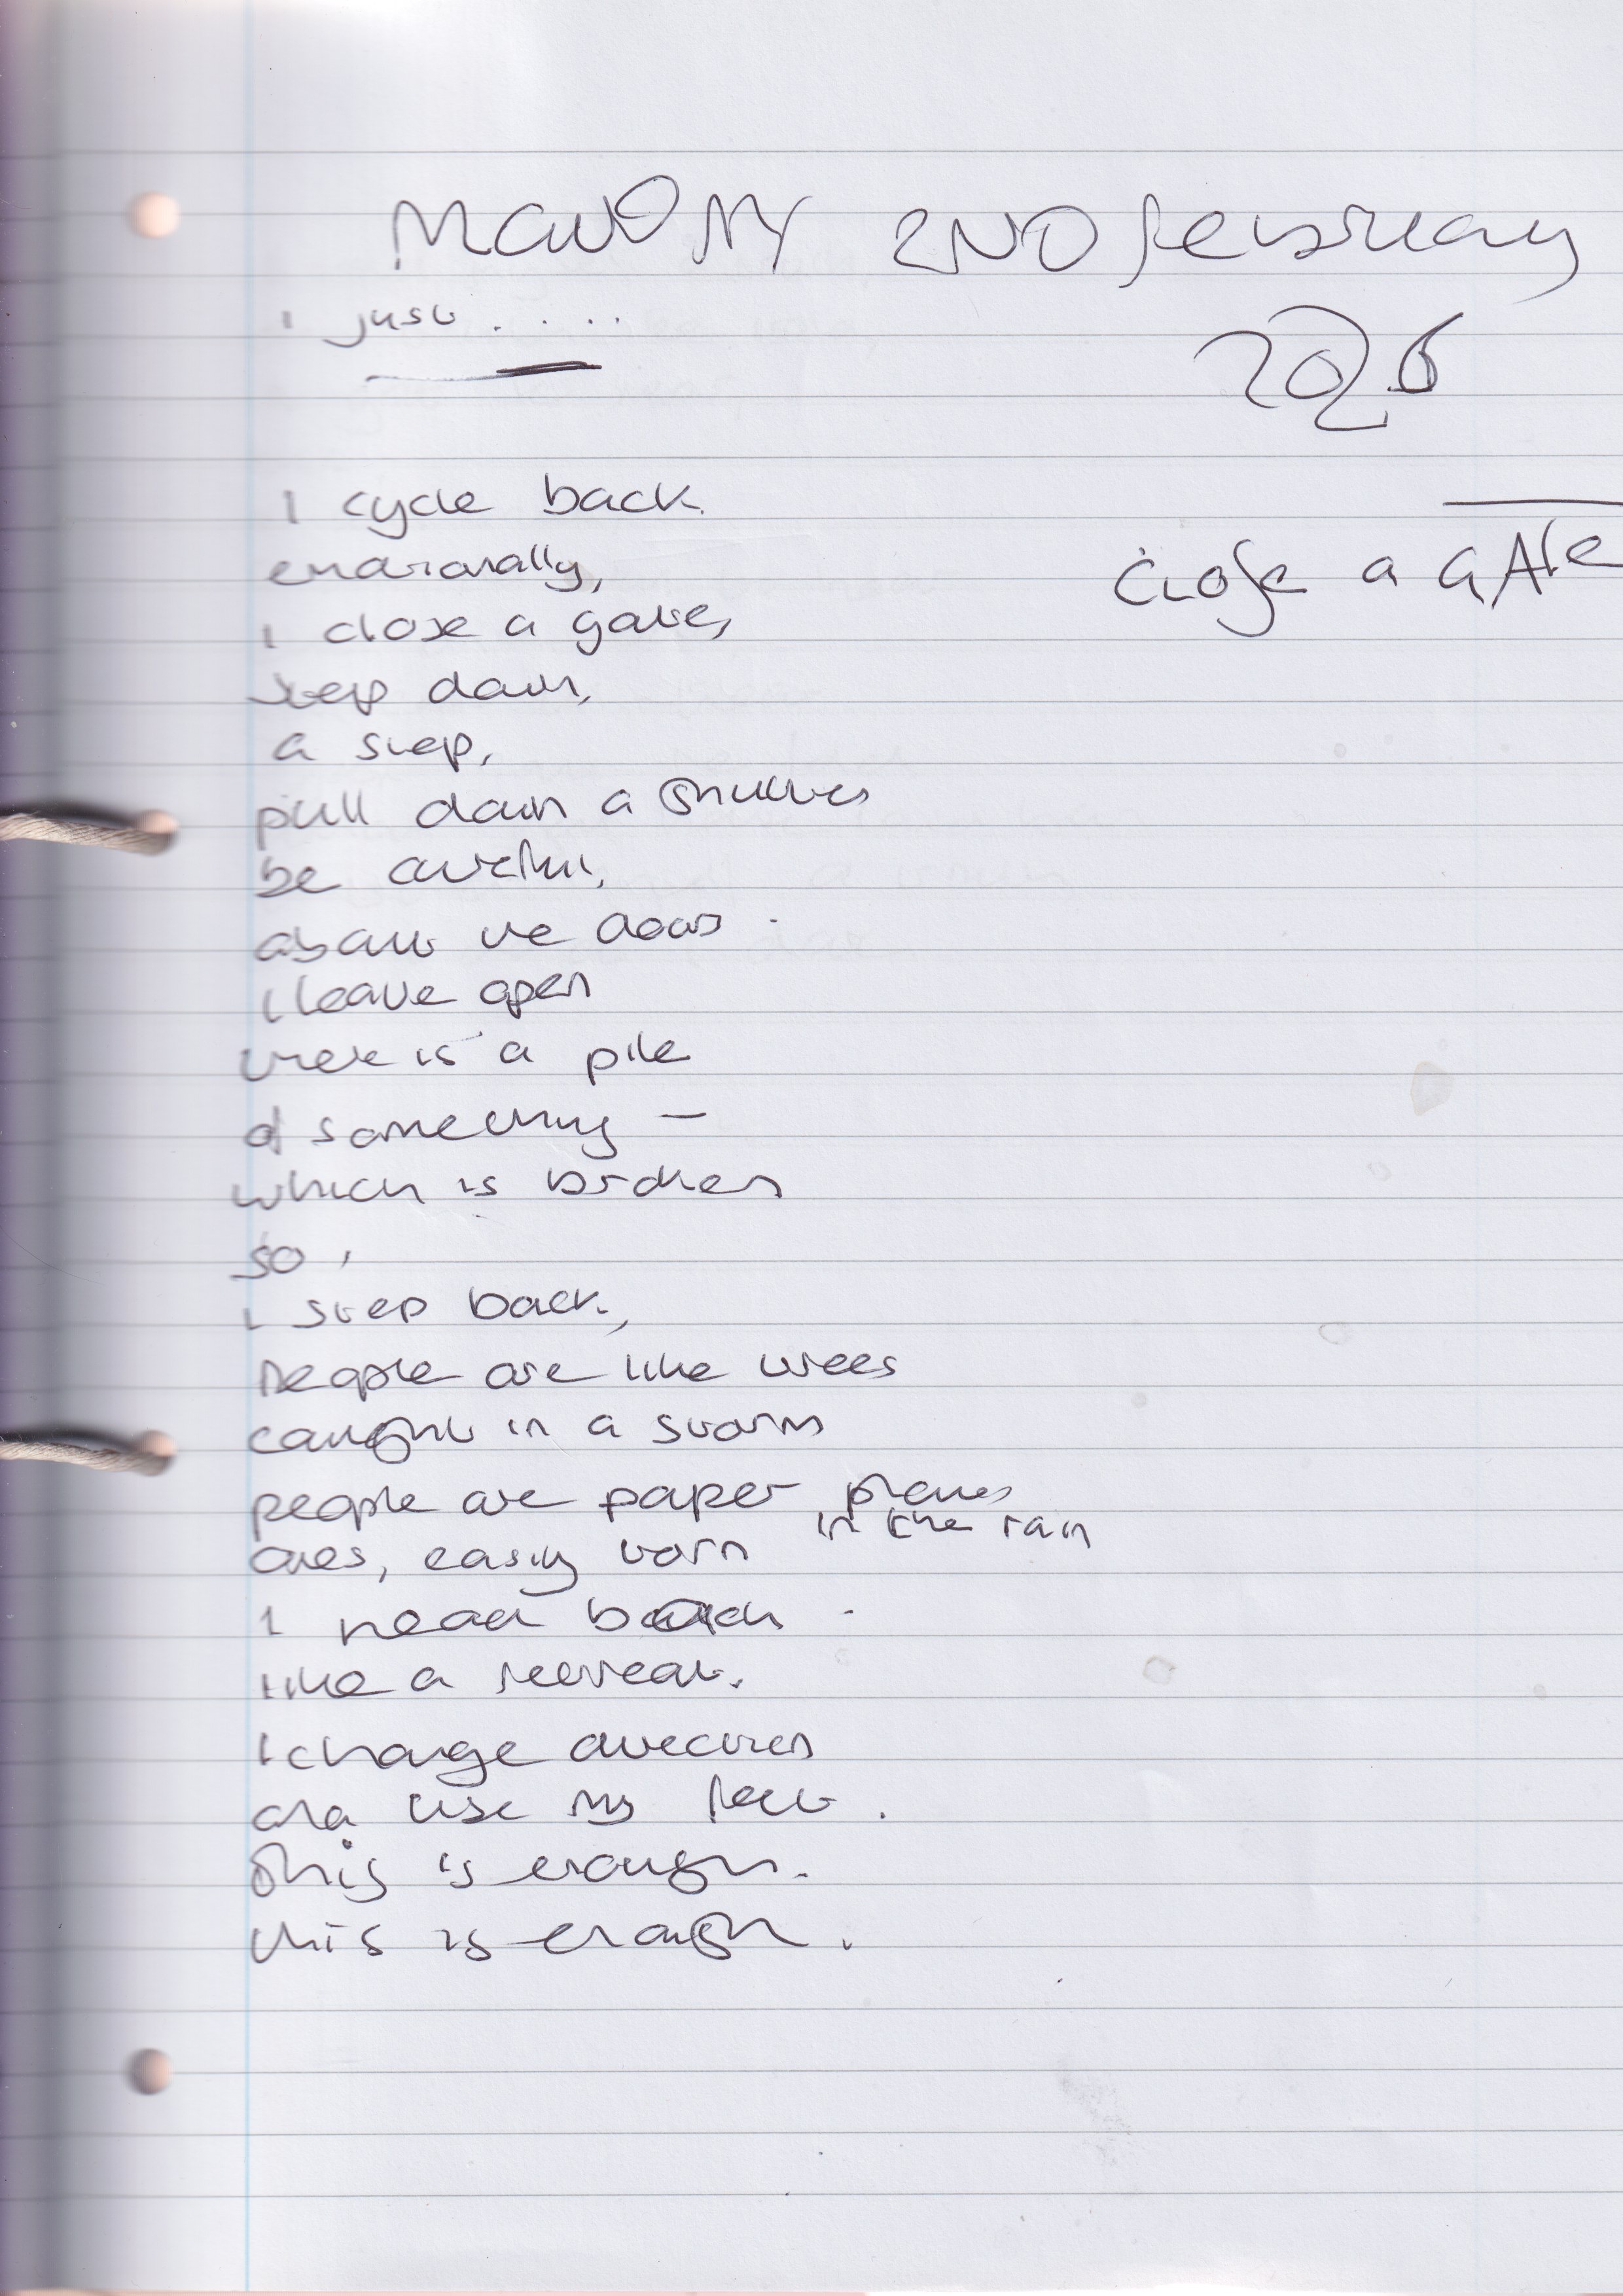 MONDAY 2ND february
2026
I just.....
close a GATE
I cycle back
emotionally,
I close a gate,
step down,
a step,
pull down a shutter
be careful,
about the doors
I leave open
there is a pile
of something —
which is broken
so,
I step back,
people are like trees
caught in a storm
people are paper planes
in the rain
ones, easily torn
I head back
like a retreat.
I change direction
and use my feet.
this is enough.
this is enough.